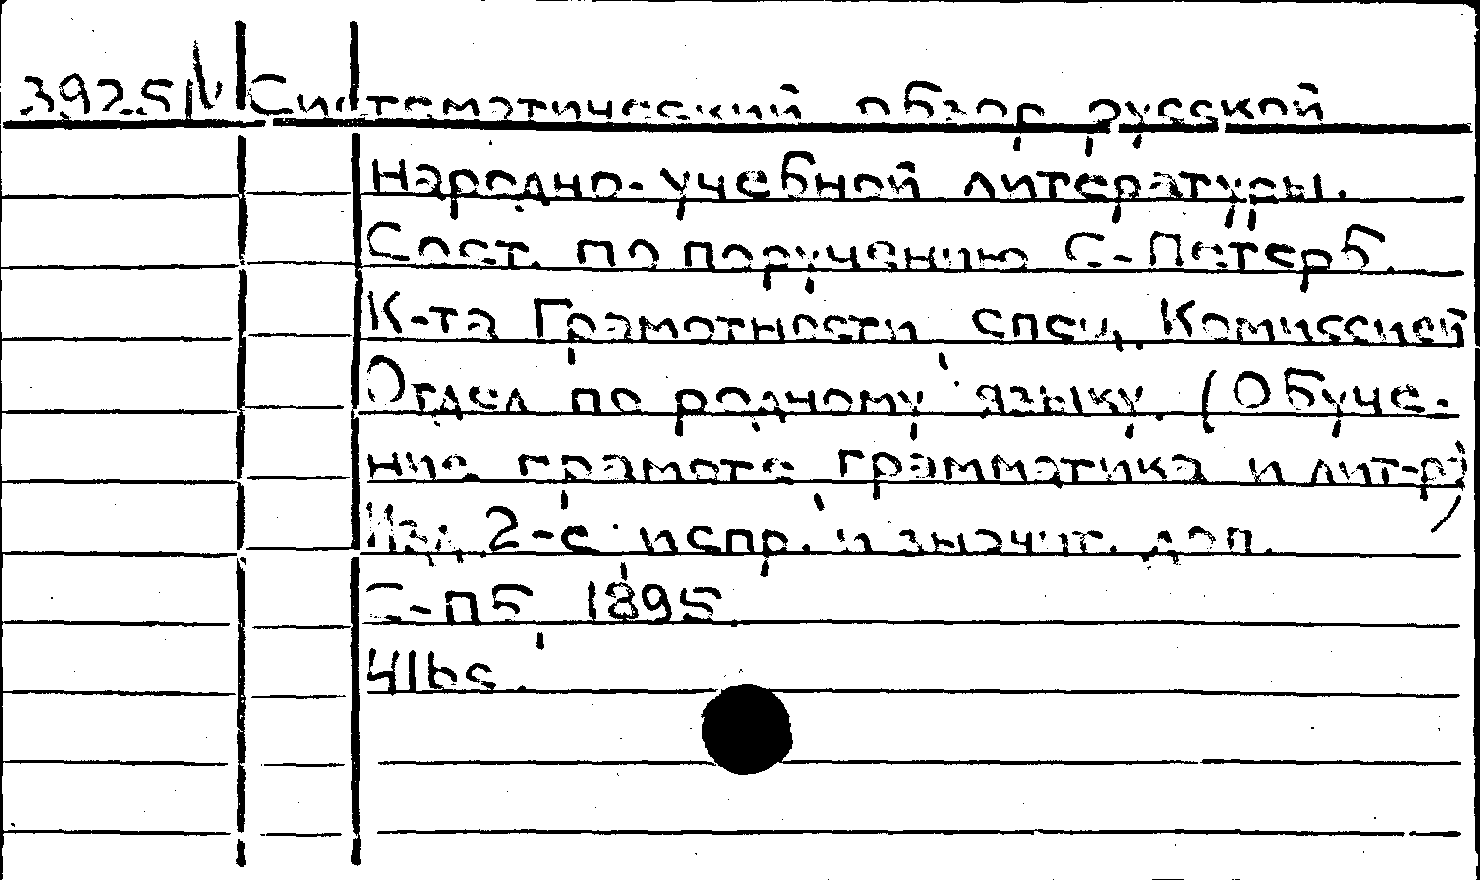 3925 IV Систематический обзор русской
народно-учебной литературы.
Сост. по поручению С-Петерб.
К-та Грамотности спец. Комиссией
Отдел по родному языку. (Обуче-
ние грамоте, грамматика и лит-ра)
Изд. 2-е, испр. и значит. доп.
С-Пб, 1895.
41 bs.